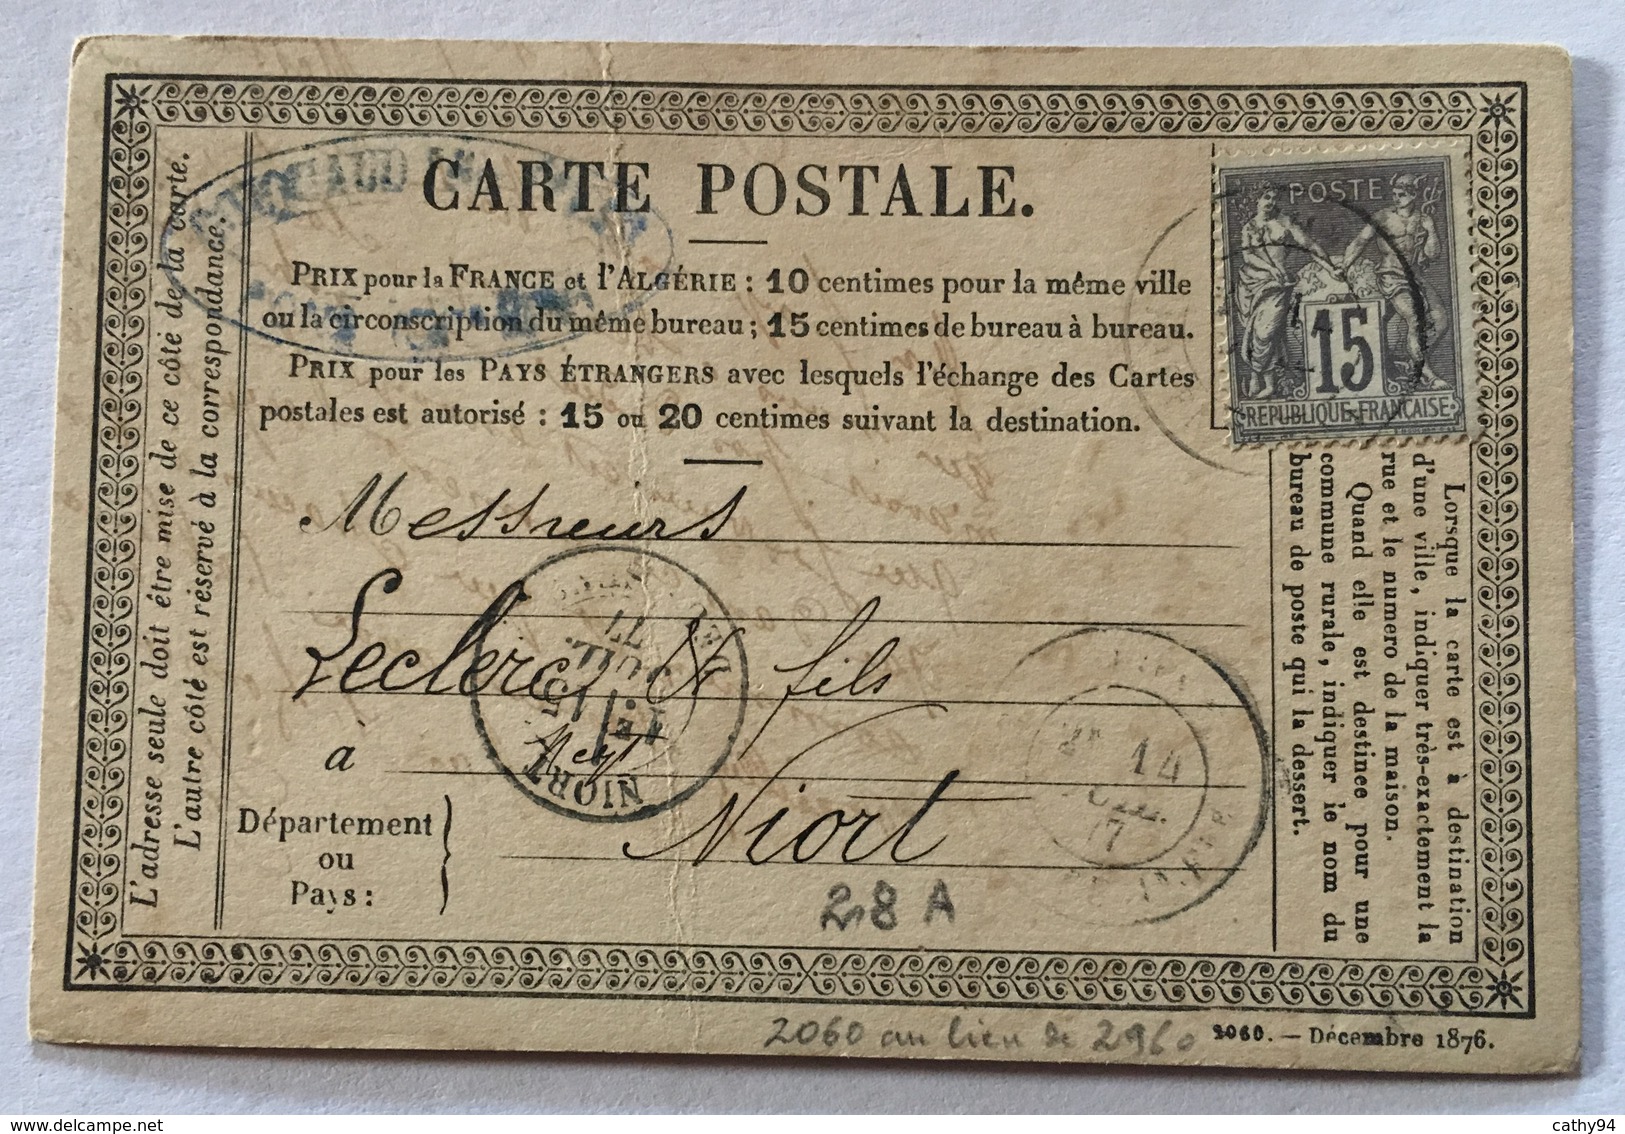 CARTE POSTALE.
PRIX pour la FRANCE et l'ALGÉRIE : 10 centimes pour la même ville
ou la circonscription du même bureau ; 15 centimes de bureau à bureau.
PRIX pour les PAYS ÉTRANGERS avec lesquels l'échange des Cartes
postales est autorisé : 15 ou 20 centimes suivant la destination.
L'adresse seule doit être mise de ce côté de la carte.
L'autre côté est réservé à la correspondance.
POSTE
15
REPUBLIQUE FRANÇAISE
Messieurs
Leclerc & fils
à
Niort
Département
ou
Pays :
NIORT
JUIL.
77
14
Lorsque la carte est à destination
d'une ville, indiquer très-exactement la
rue et le numero de la maison.
Quand elle est destinée pour une
commune rurale, indiquer le nom du
bureau de poste qui la dessert.
28 A
2060 au lieu de 2960
2060. — Décembre 1876.
cathy94